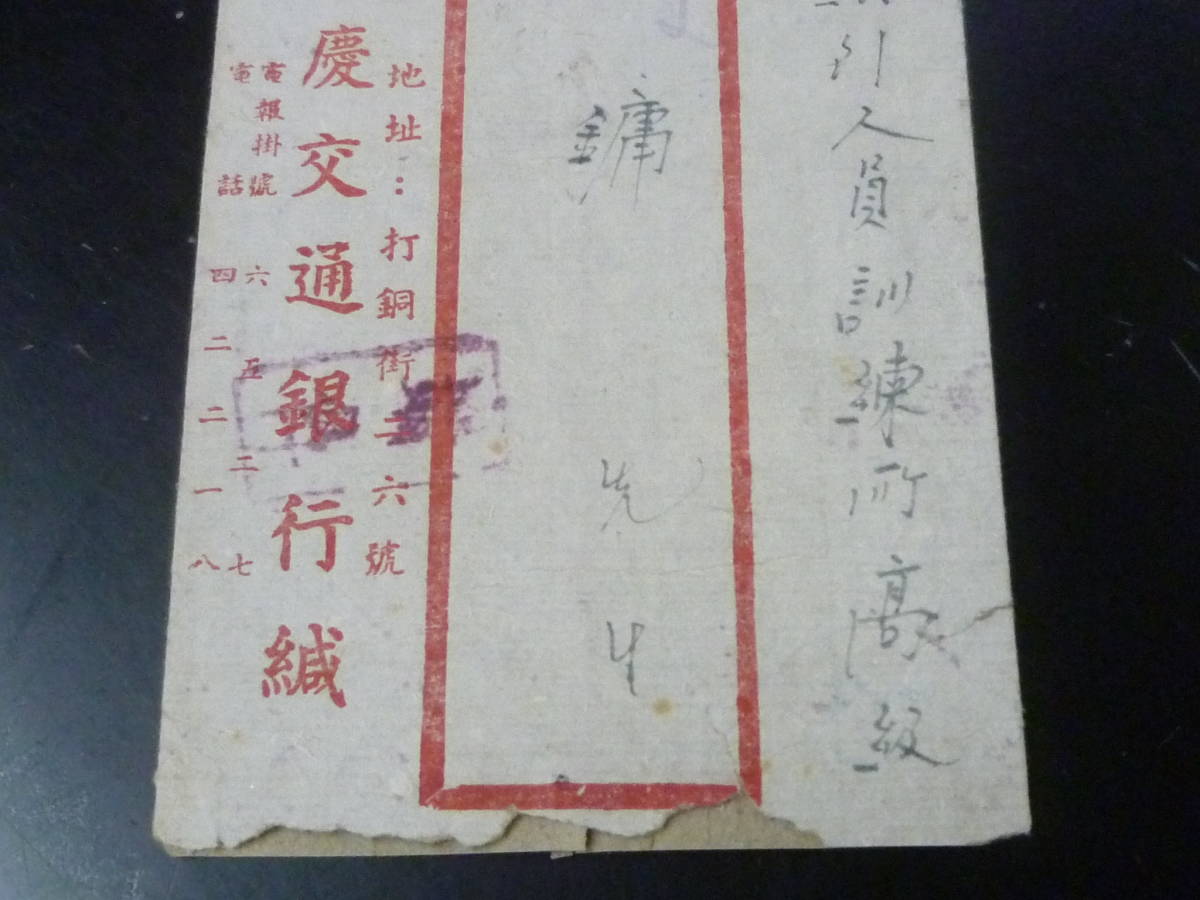 人員訓練所高級
鏞 先生
地址：打銅街二六號
慶交通銀行緘
電報掛號 六五二七
電話 四二二一八